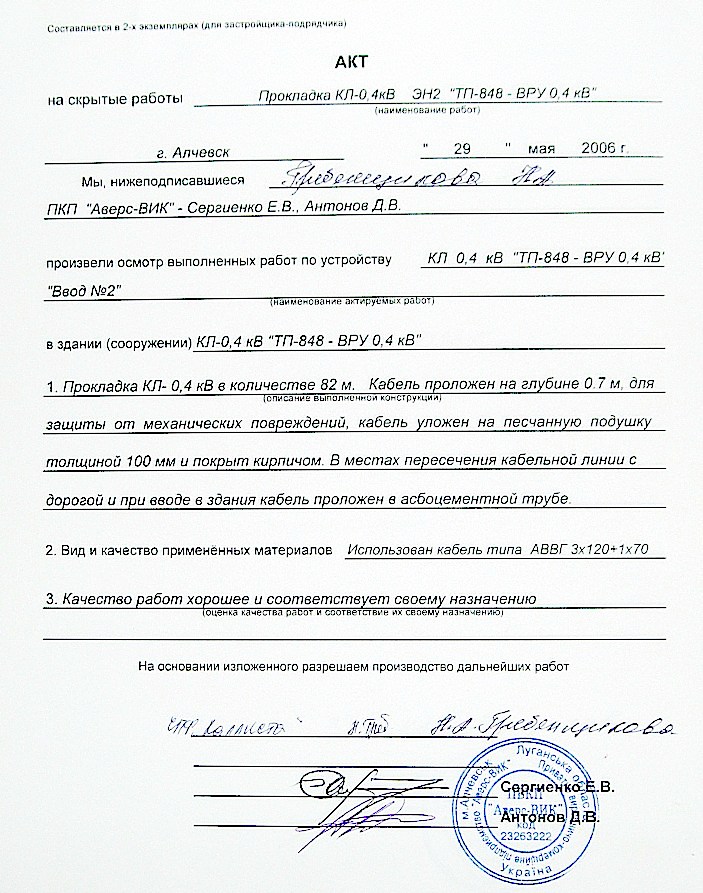 Составляется в 2-х экземплярах (для застройщика-подрядчика)
АКТ
на скрытые работы Прокладка КЛ-0,4кВ ЭН2 "ТП-848 - ВРУ 0,4 кВ"
(наименование работ)
г. Алчевск " 29 " мая 2006 г.
Мы, нижеподписавшиеся Гребенщикова Н.А.
ПКП "Аверс-ВИК" - Сергиенко Е.В., Антонов Д.В.
произвели осмотр выполненных работ по устройству КЛ 0,4 кВ "ТП-848 - ВРУ 0,4 кВ"
"Ввод №2"
(наименование актируемых работ)
в здании (сооружении) КЛ-0,4 кВ "ТП-848 - ВРУ 0,4 кВ"
1. Прокладка КЛ- 0,4 кВ в количестве 82 м. Кабель проложен на глубине 0.7 м, для
(описание выполненной конструкции)
защиты от механических повреждений, кабель уложен на песчанную подушку
толщиной 100 мм и покрыт кирпичом. В местах пересечения кабельной линии с
дорогой и при вводе в здания кабель проложен в асбоцементной трубе.
2. Вид и качество применённых материалов Использован кабель типа АВВГ 3х120+1х70
3. Качество работ хорошее и соответствует своему назначению
(оценка качества работ и соответствие их своему назначению)
На основании изложенного разрешаем производство дальнейших работ
Н.А. Гребенщикова
Сергиенко Е.В.
Антонов Д.В.
м.Алчевськ Луганська область
Україна
ПВКП
"Аверс-ВИК"
код
23263222